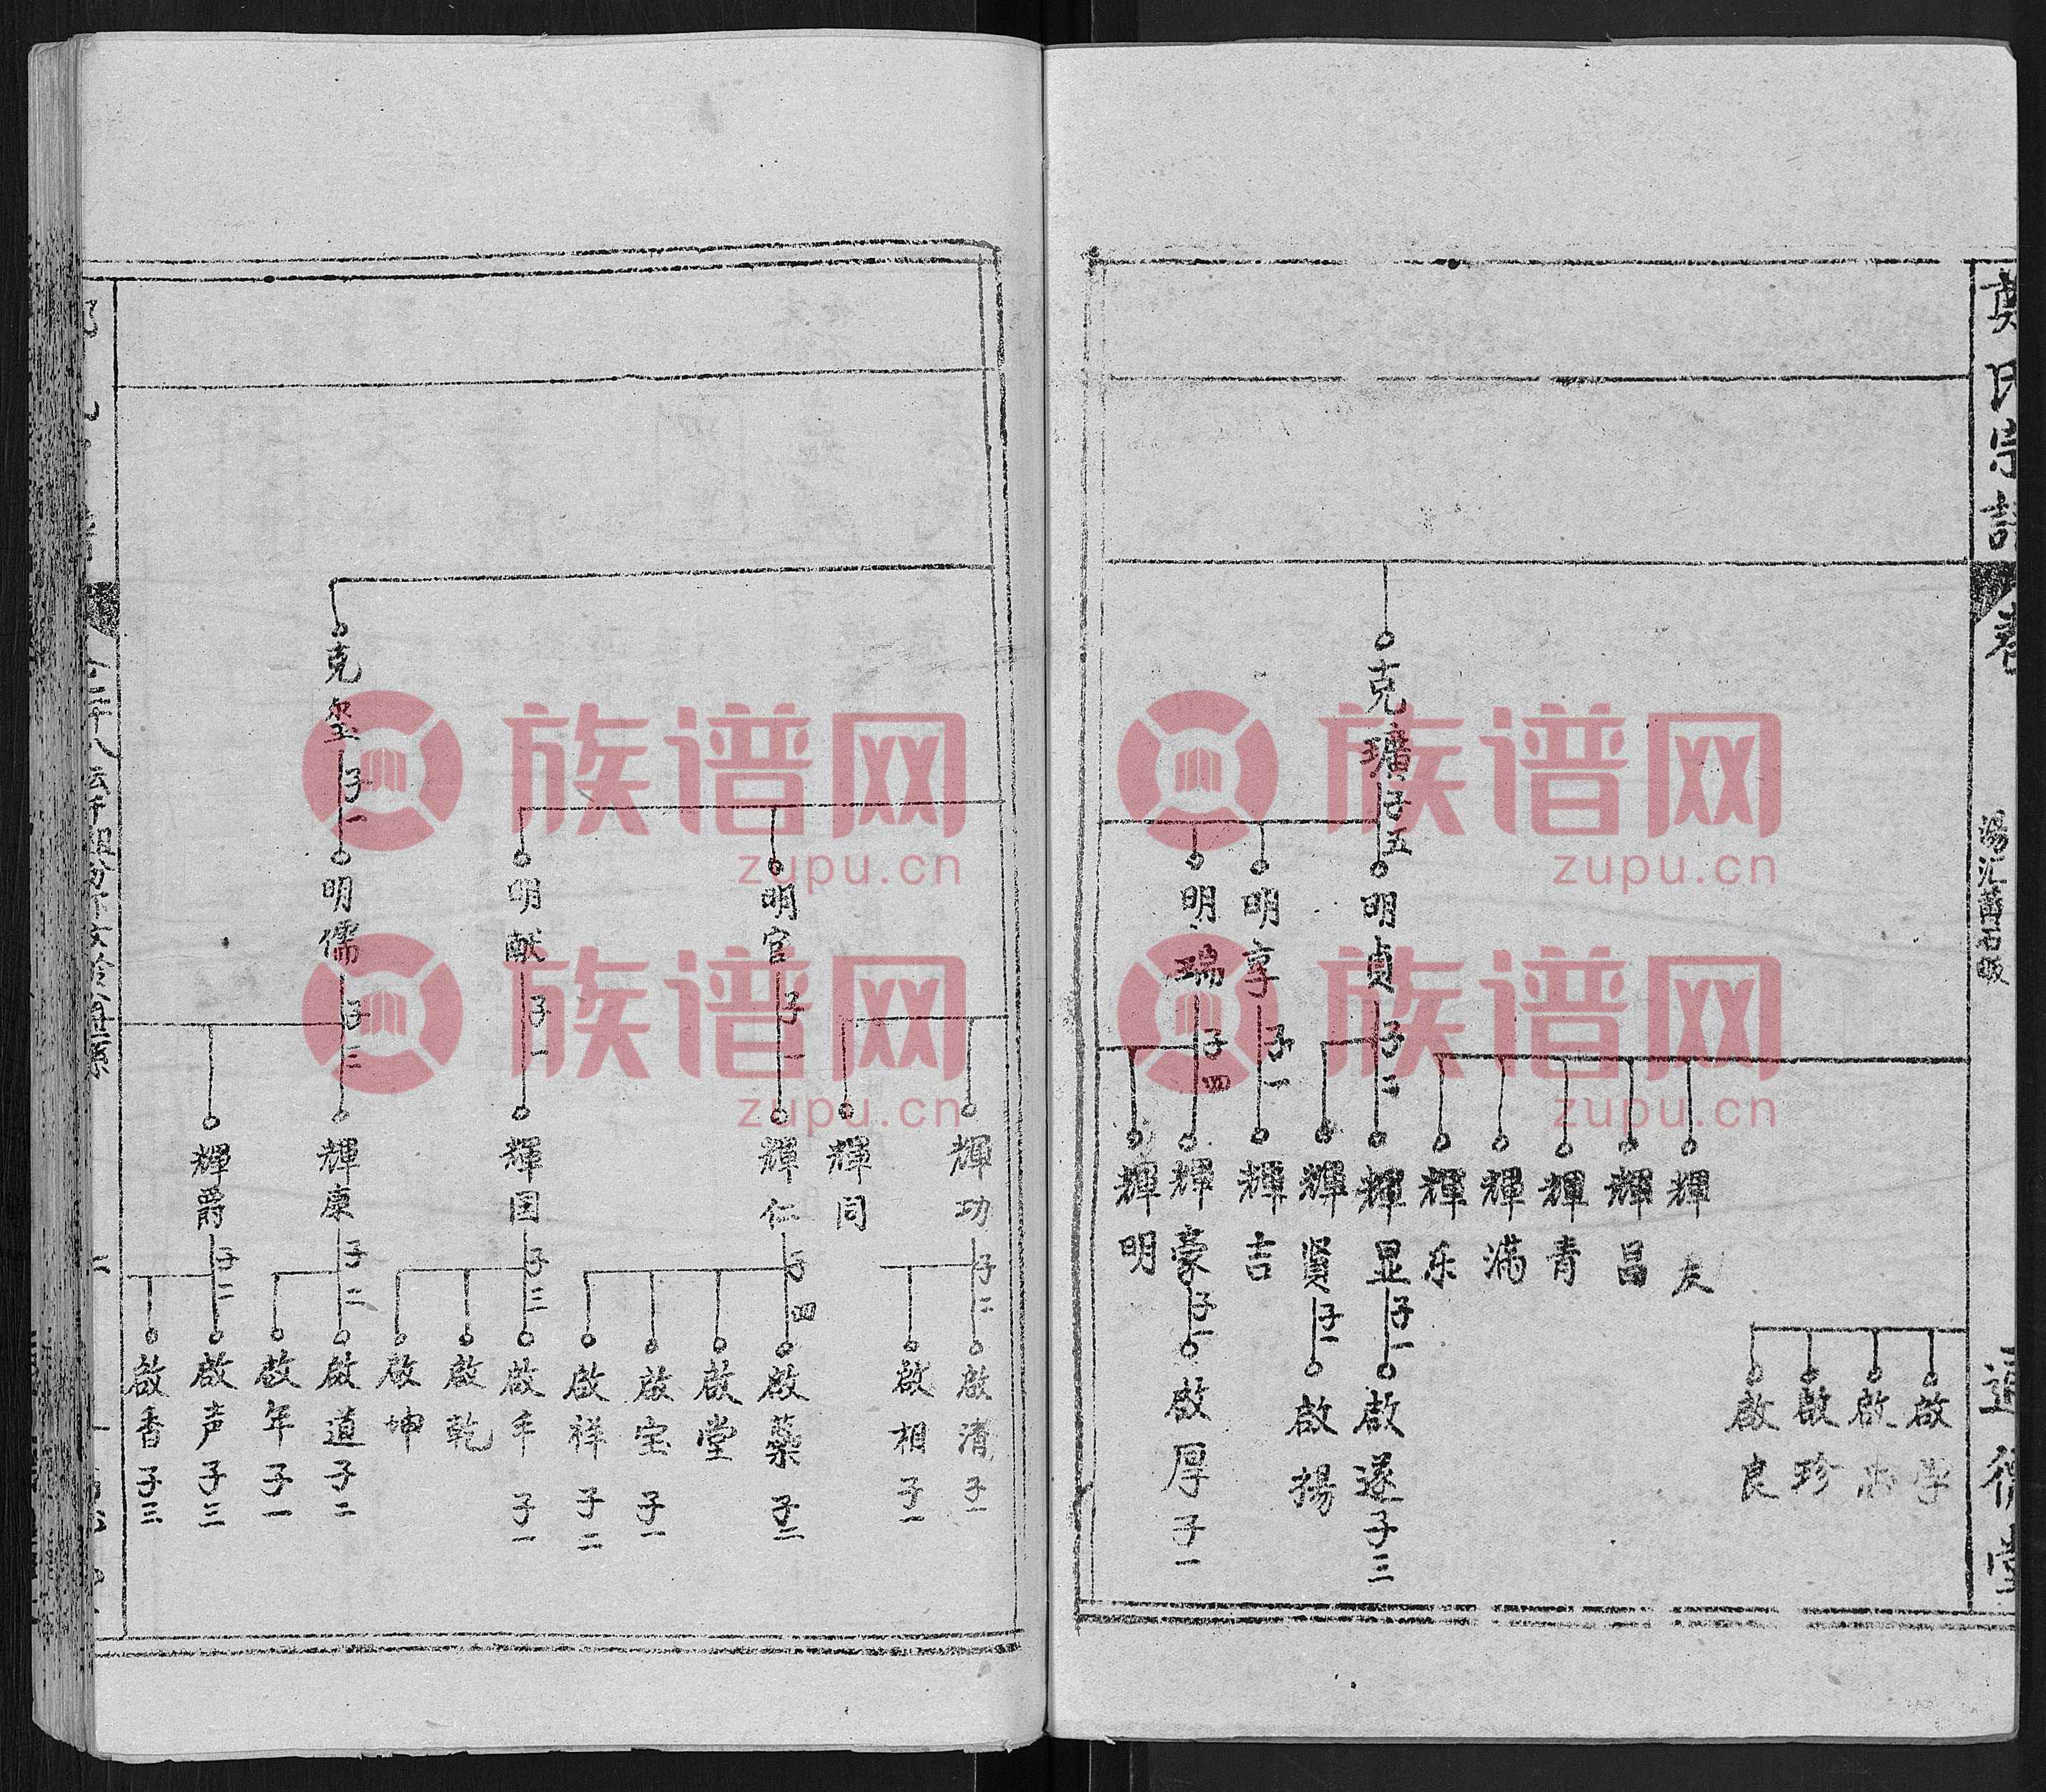 氏宗譜
卷
克壙子五
明貞子二
明享子一
明瑞子四
輝友
輝昌
輝青
輝满
輝乐
輝显子一
輝賢子一
輝吉
輝豪子一
輝明
啟学
啟珍
啟良
啟遂子三
啟揚
啟厚子一
克玺子一
明官子一
明献子一
明儒子二
輝功子二
輝同
輝仁子四
輝国子三
輝康子二
輝爵子二
啟清子一
啟相子一
啟藥子二
啟堂
啟宝子一
啟祥子二
啟丰子一
啟乾
啟坤
啟道子二
啟年子一
啟声子三
啟香子三
族谱网
zupu.cn
族谱网
zupu.cn
族谱网
zupu.cn
族谱网
zupu.cn